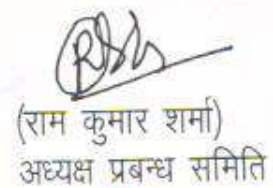 (राम कुमार शर्मा)
अध्यक्ष प्रबन्ध समिति